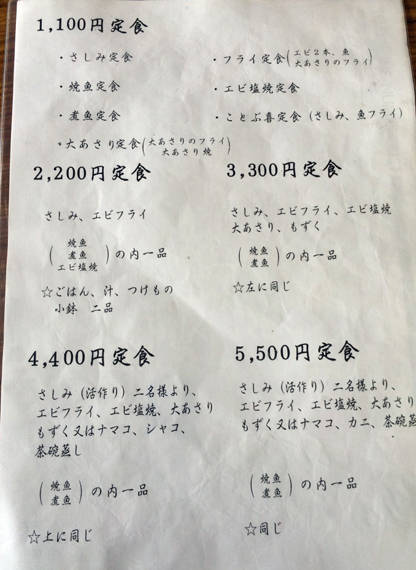 1,100円定食
・さしみ定食
・焼魚定食
・煮魚定食
・大あさり定食(大あさりのフライ
大あさり焼)
・フライ定食(エビ2本、魚
大あさりのフライ)
・エビ塩焼定食
・ことぶ喜定食(さしみ、魚フライ)
2,200円定食
さしみ、エビフライ
(焼魚
煮魚
エビ塩焼)の内一品
☆ごはん、汁、つけもの
小鉢 二品
3,300円定食
さしみ、エビフライ、エビ塩焼
大あさり、もずく
(焼魚
煮魚)の内一品
☆左に同じ
4,400円定食
さしみ(活作り)二名様より、
エビフライ、エビ塩焼、大あさり
もずく又はナマコ、シャコ、
茶碗蒸し
(焼魚
煮魚)の内一品
☆上に同じ
5,500円定食
さしみ(活作り)二名様より、
エビフライ、エビ塩焼、大あさり
もずく又はナマコ、カニ、茶碗蒸
(焼魚
煮魚)の内一品
☆同じ